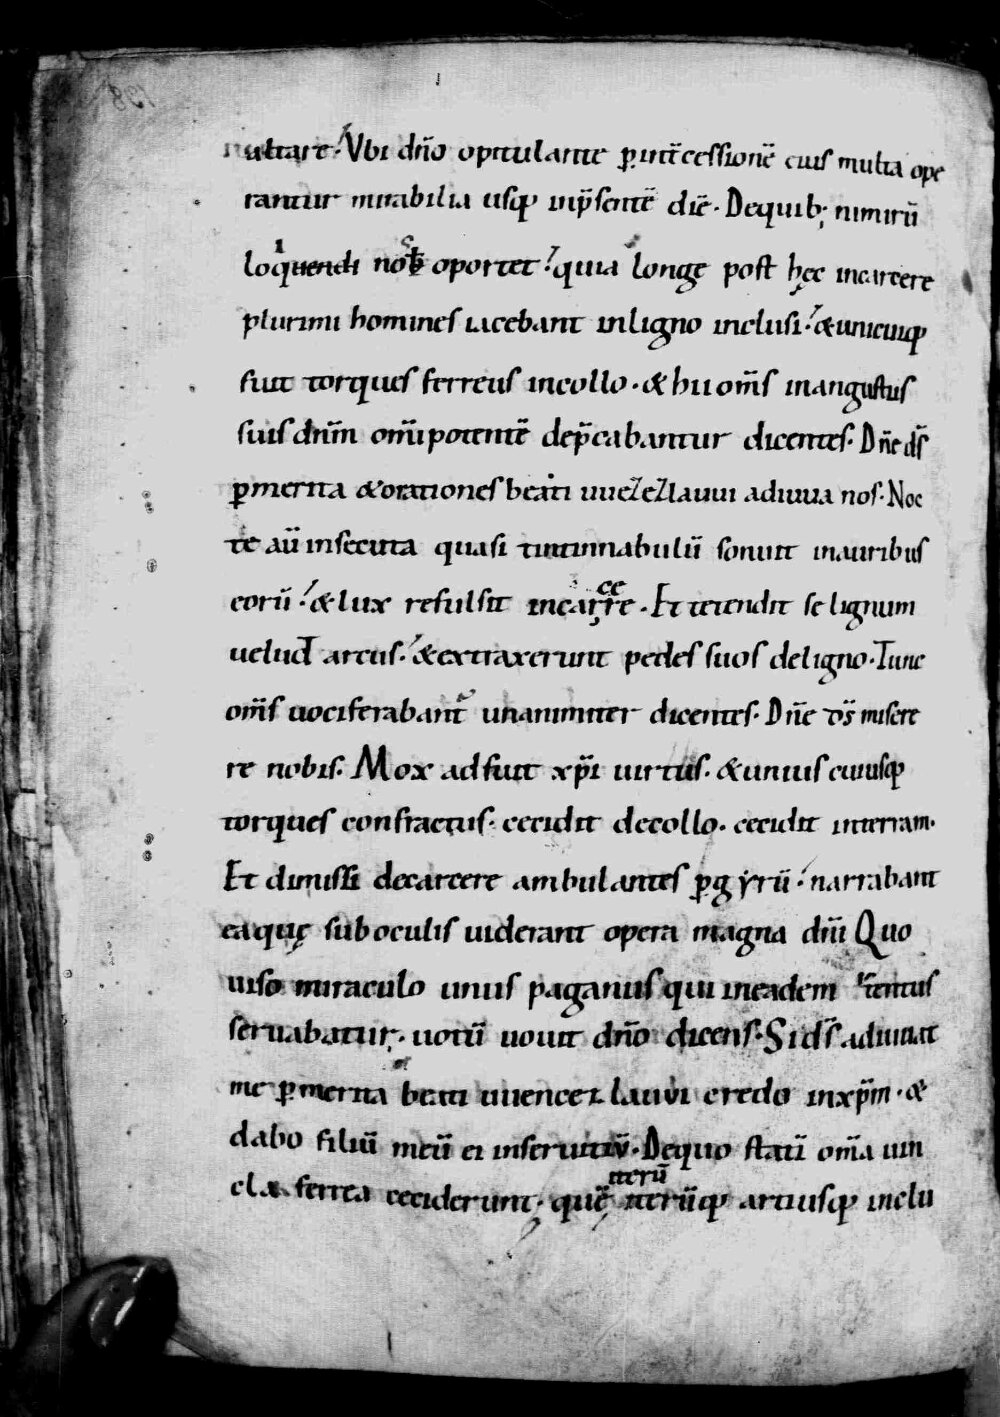 altare. Vbi dño opitulante ꝑ int̄cessionē eius multa ope
rantur mirabilia usq; inp̄sentē diē. Dequib; nimirū
loquendi nob oportet. quia longe post hęc incarcere
plurimi homines iacebant inligno inclusi. & unicuiq;
fuit torques ferreus incollo. & hii om̄s inangustus
suis dn̄m om̄ipotentē dep̄cabantur dicentes. Dn̄e ds̄
ꝑ merita & orationes beati uuezezlauui adiuua nos. Noc
te aū insecuta quasi tintinnabulū sonuit inauribus
eorū. & lux refulsit incarcere. Et tetendit se lignum
uelud arcus. & extraxerunt pedes suos deligno. Tunc
om̄s uociferabant̄ unanimiter dicentes. Dn̄e ds̄ misere
re nobis. Mox adfuit xp̄i uirtus. & unius cuiusq;
torques confractus. cecidit decollo. cecidit interram.
Et dimissi decarcere ambulantes ꝑ gyrū. narrabant
ea quę sub oculis uiderant opera magna dn̄i Quo
uiso miraculo unus paganus qui ineadem tentus
seruabatur. uotū uouit dn̄o dicens. Si ds̄ adiuuat
me ꝑ merita beati uuencezlauui credo inxp̄m. &
dabo filiū meū ei inseruitiū. Dequo statī om̄a uin
cla ferrea ceciderunt. quē iterū iterūq; artiusq; inclu